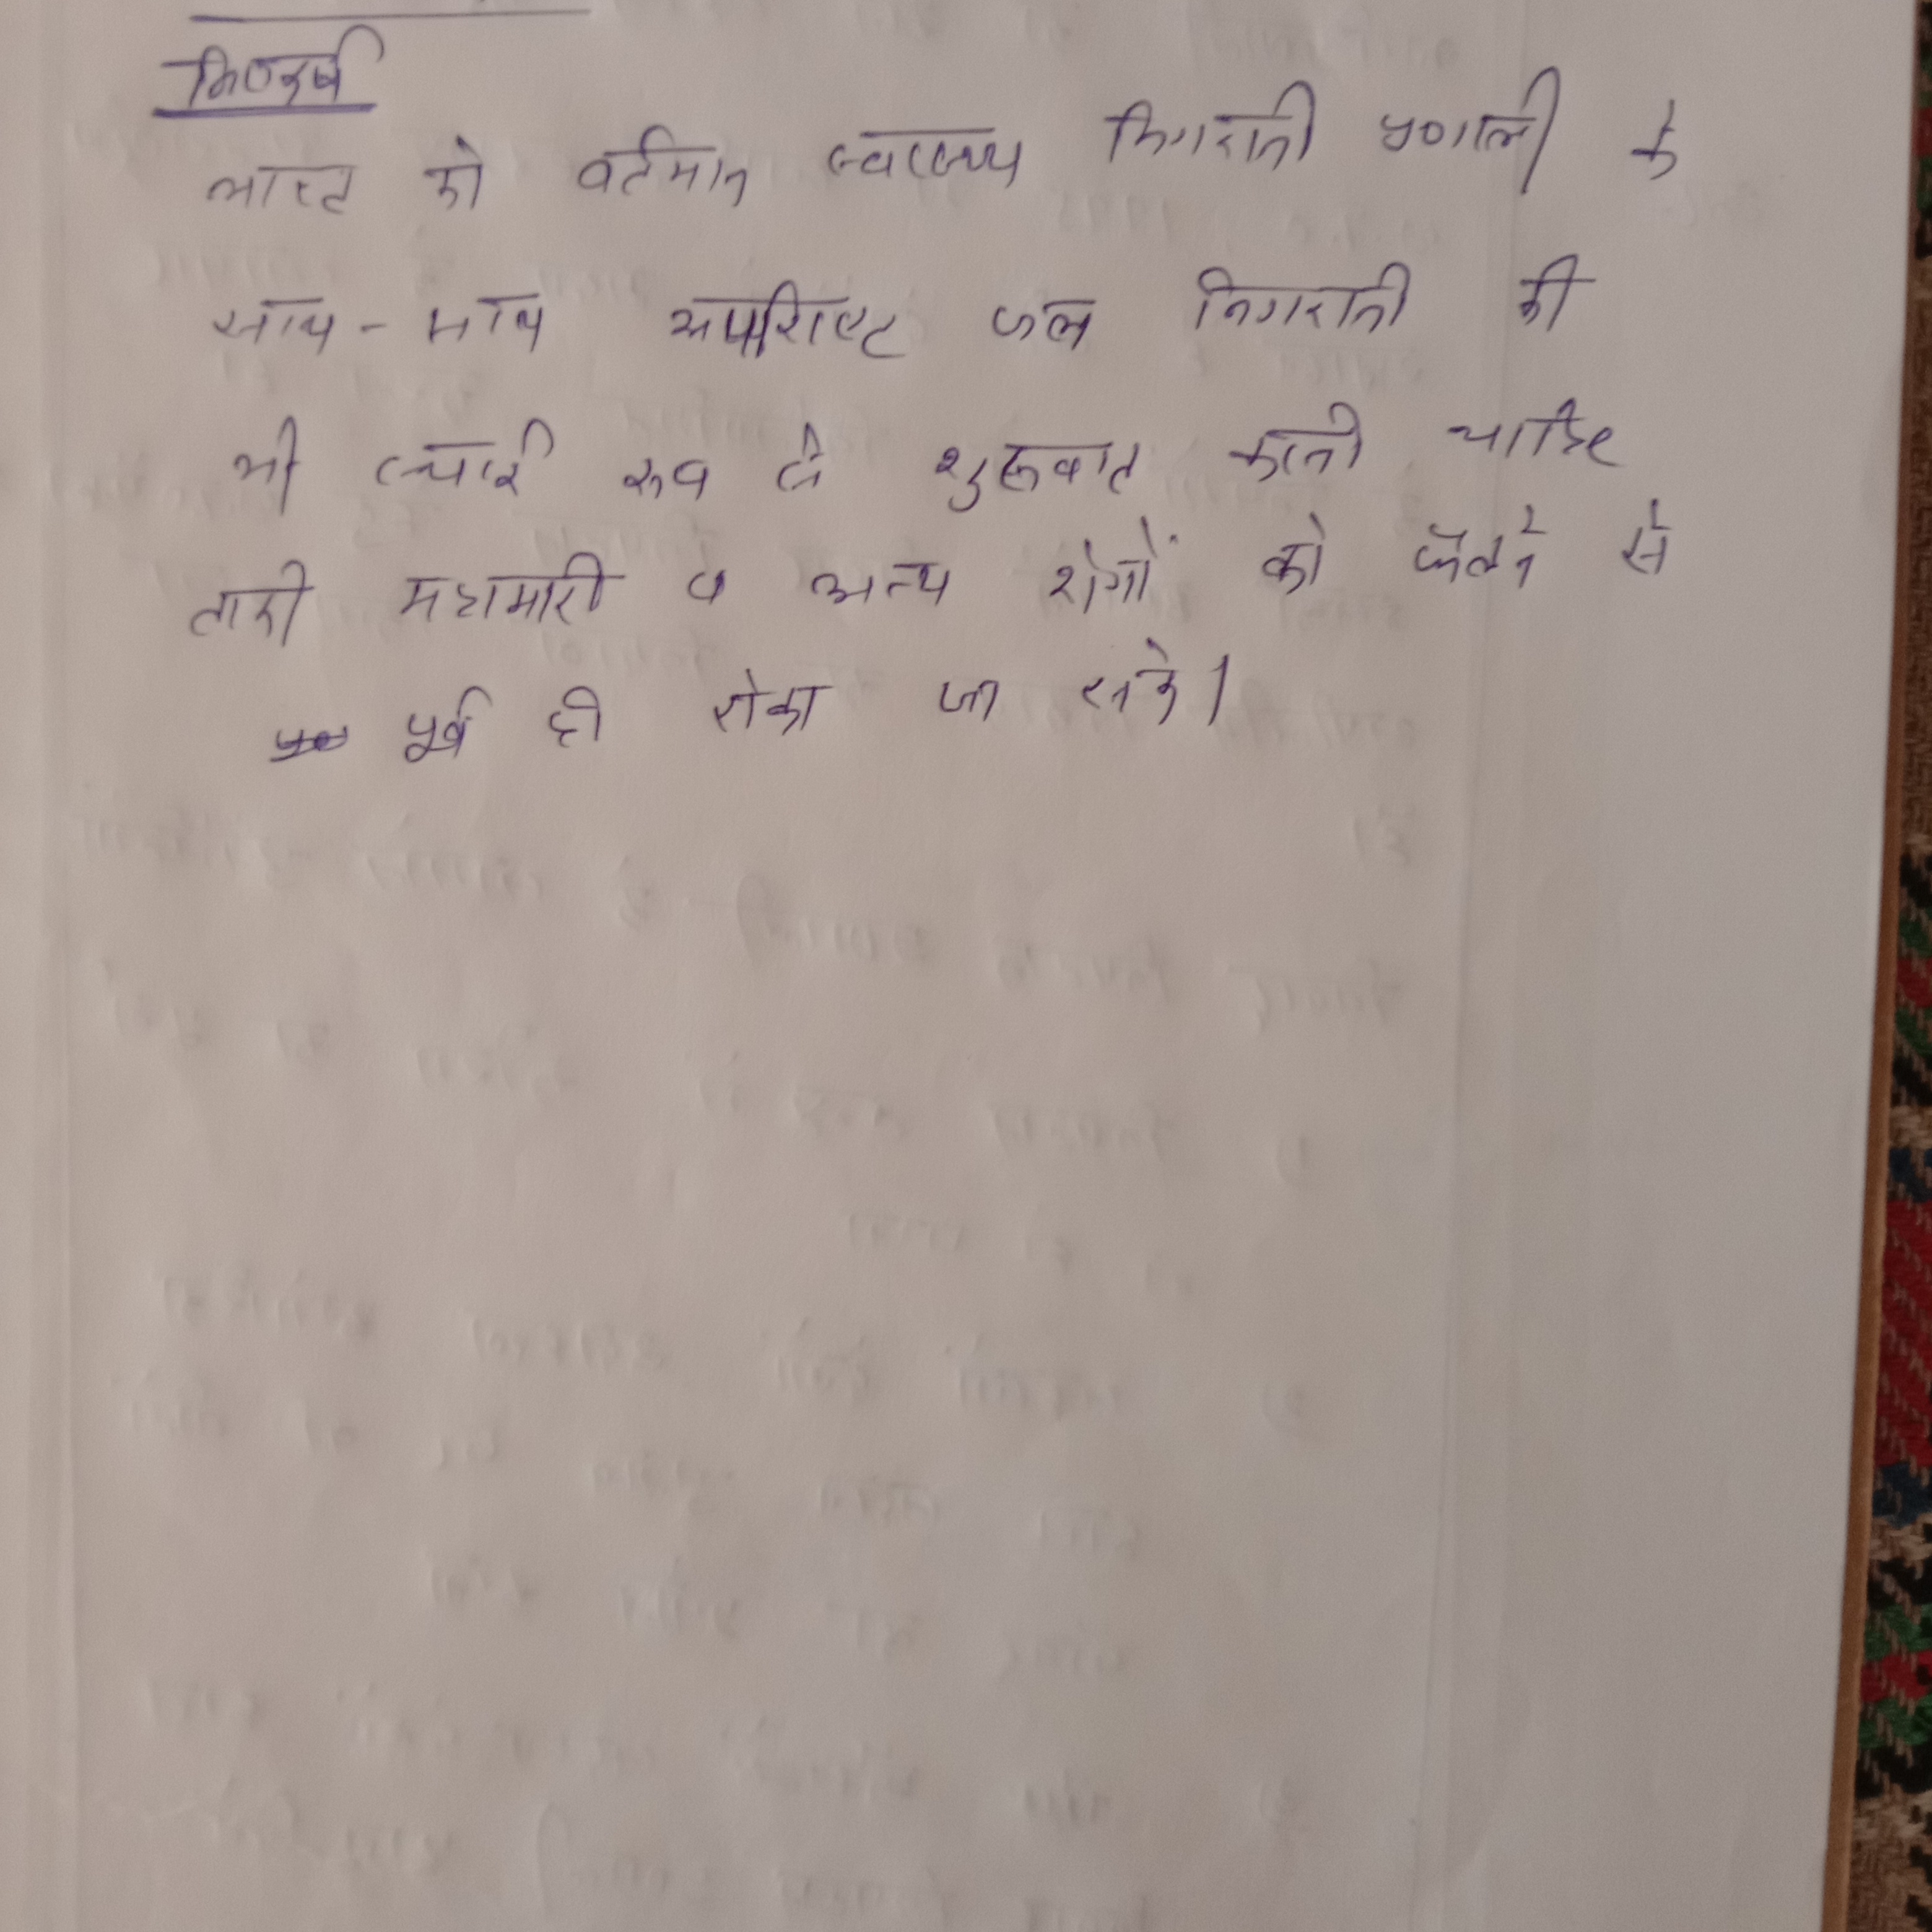 निष्कर्ष
भारत को वर्तमान स्वास्थ्य निगरानी प्रणाली के
साथ - साथ अपशिष्ट जल निगरानी की
भी स्थाई रूप से शुरूवात करनी चाहिए
ताकी महामारी व अन्य रोगों को फैलने से
पूर्व ही रोका जा सके।